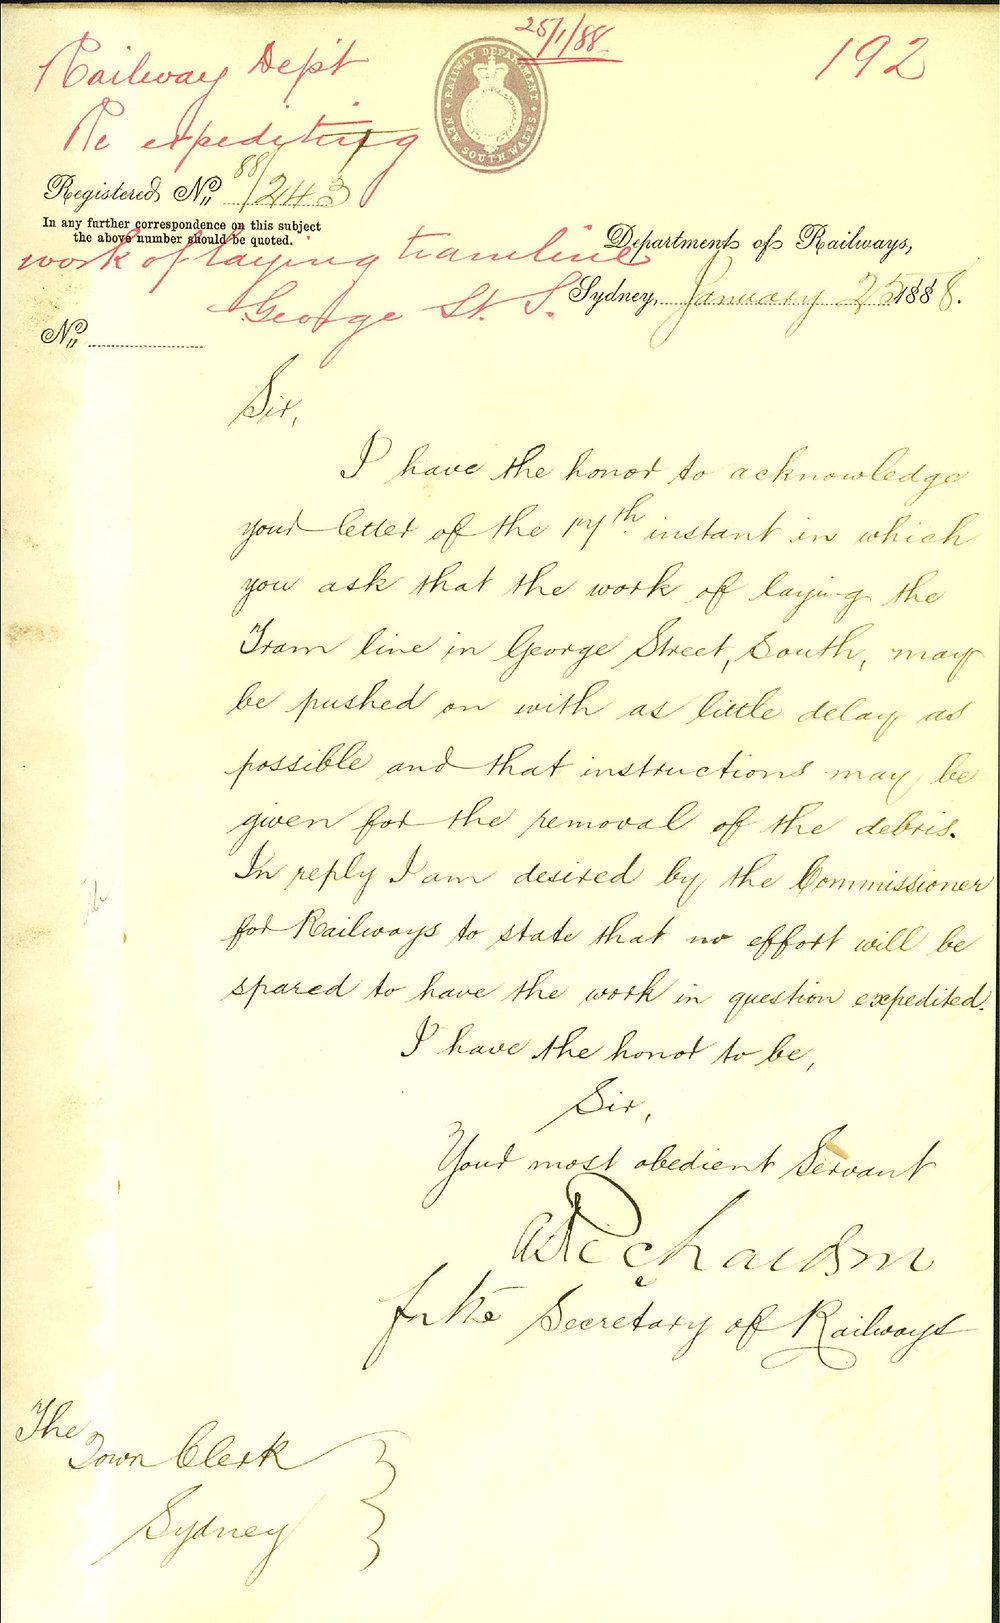 25/1/88.
192
Railway Dept
Re expediting
work of laying tramline
George St. S.
RAILWAY DEPARTMENT
NEW SOUTH WALES
Registered No. 88/243
In any further correspondence on this subject
the above number should be quoted.
No.
Department of Railways,
Sydney, January 25 1888.
Sir,
I have the honor to acknowledge
your letter of the 17th. instant in which
you ask that the work of laying the
Tram line in George Street, South, may
be pushed on with as little delay as
possible and that instructions may be
given for the removal of the debris.
In reply I am desired by the Commissioner
for Railways to state that no effort will be
spared to have the work in question expedited.
I have the honor to be,
Sir,
Your most obedient Servant
Richardson
for the Secretary of Railways
The
Town Clerk
Sydney